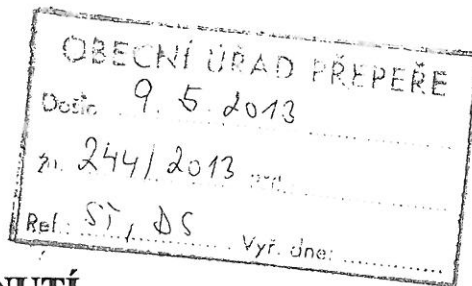 OBECNÍ ÚŘAD PŘEPEŘE
Došlo 9. 5. 2013
244/2013
Ref.: ST, DS Vyř. dne:
NUTÍ